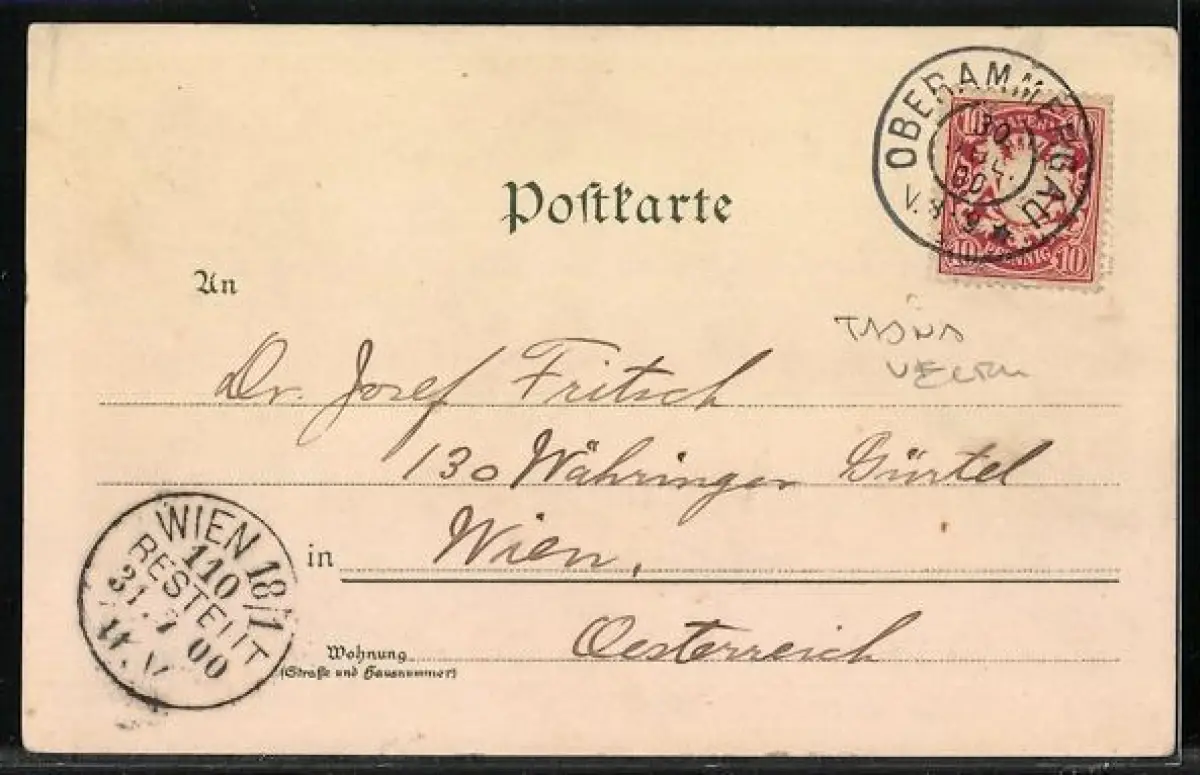 Postkarte
OBERAMMERGAU
30
JUL.
00
V. 8-9
10 10
BAYERN
10 PFENNIG 10
An
Dr. Josef Fritsch
130 Währinger Gürtel
in Wien,
Oesterreich
Wohnung
(Straße und Hausnummer)
WIEN 18/1
110
BESTELLT
31. 7 00
V